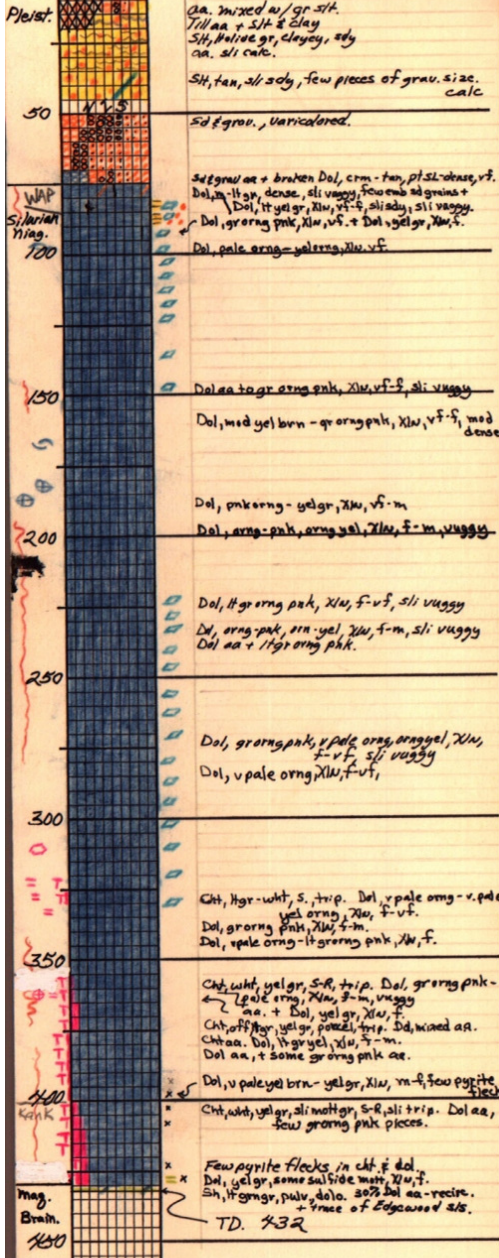 Pleist.
aa. mixed w/ gr slt.
Till aa + Slt & clay
Slt, gr, clayey, sdy
aa. sli calc.
Slt, tan, sli sdy, few pieces of grav. size.
calc
50
Sd & grav., varicolored.
Sd & grav aa + broken Dol, crm-tan, pt SL-dense, vf.
WAP
Dol, m-ltgr, dense, sli vuggy, few emb sd grains +
Dol, lt yelgr, Xln, vf-f, sli sdy, sli vuggy.
Silurian
Niag.
Dol, grorng pnk, Xln, vf. + Dol, yelgr, Xln, f.
100
Dol, pale orng-yelorng, Xln, vf.
150
Dol aa to gr orng pnk, Xln, vf-f, sli vuggy
Dol, mod yel brn - grorng pnk, Xln, vf-f, mod
dense
Dol, pnkorng-yelgr, Xln, vf-m
200
Dol, orng-pnk, orng yel, Xln, f-m, vuggy
Dol, ltgrorng pnk, Xln, f-vf, sli vuggy
Dol, orng-pnk, orn-yel, Xln, f-m, sli vuggy
Dol aa + ltgr orng pnk.
250
Dol, grorng pnk, v pale orng, orngyel, Xln,
f-vf, sli vuggy
Dol, v pale orng, Xln, f-vf,
300
Cht, ltgr-wht, S., trip. Dol, v pale orng-v. pale
yel orng, Xln, f-vf.
Dol, grorng pnk, Xln, f-m.
Dol, vpale orng-ltgrorng pnk, Xln, f.
350
Cht, wht, yelgr, S-R, trip. Dol, grorng pnk-
pale orng, Xln, f-m, vuggy
aa. + Dol, yelgr, Xln, f.
Cht, off, ltgr, yelgr, porcel, trip. Dol, mixed aa.
Cht aa. Dol, ltgryel, Xln, f-m.
Dol aa, + some grorng pnk aa.
Dol, v paleyel brn-yelgr, Xln, m-f, few pyrite
fleck
400
KanK
Cht, wht, yelgr, sli mott gr, S-R, sli trip. Dol aa,
few grorng pnk pieces.
Few pyrite flecks in cht & dol.
Dol, yelgr, some sulfide mott, Xln, f.
Maq.
Sh, lt grngr, pulv, dolo. 30% Dol aa-recirc.
+ trace of Edgewood sls.
Brain.
TD. 432
450